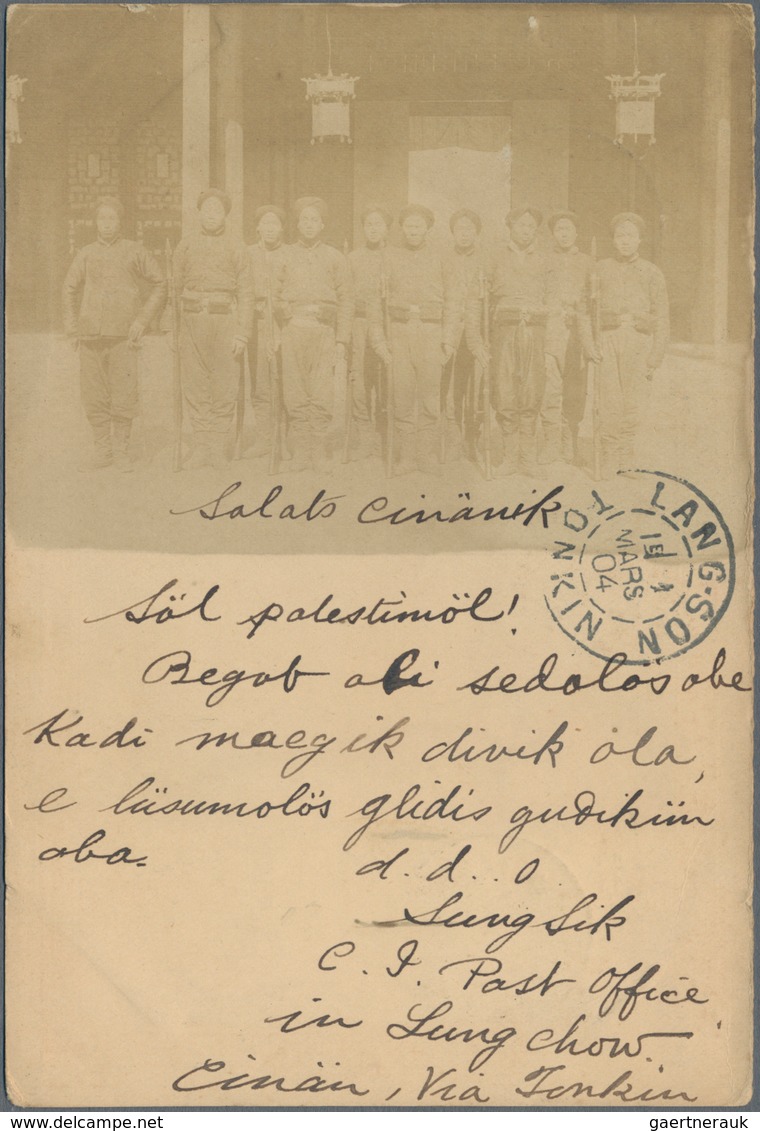 Salats cinänik
LANG-SON TONKIN
1E 4
MARS
04
Söl palestimöl!
Begob oli sedolös obe
Kadi magik divik ola,
e lüsumolös glidis gudikün
oba.
d. d.. o
Lung Sik
C. I. Post office
in Lung chow.
Cinän, Via Tonkin
gaertnerauk | delcampe.net